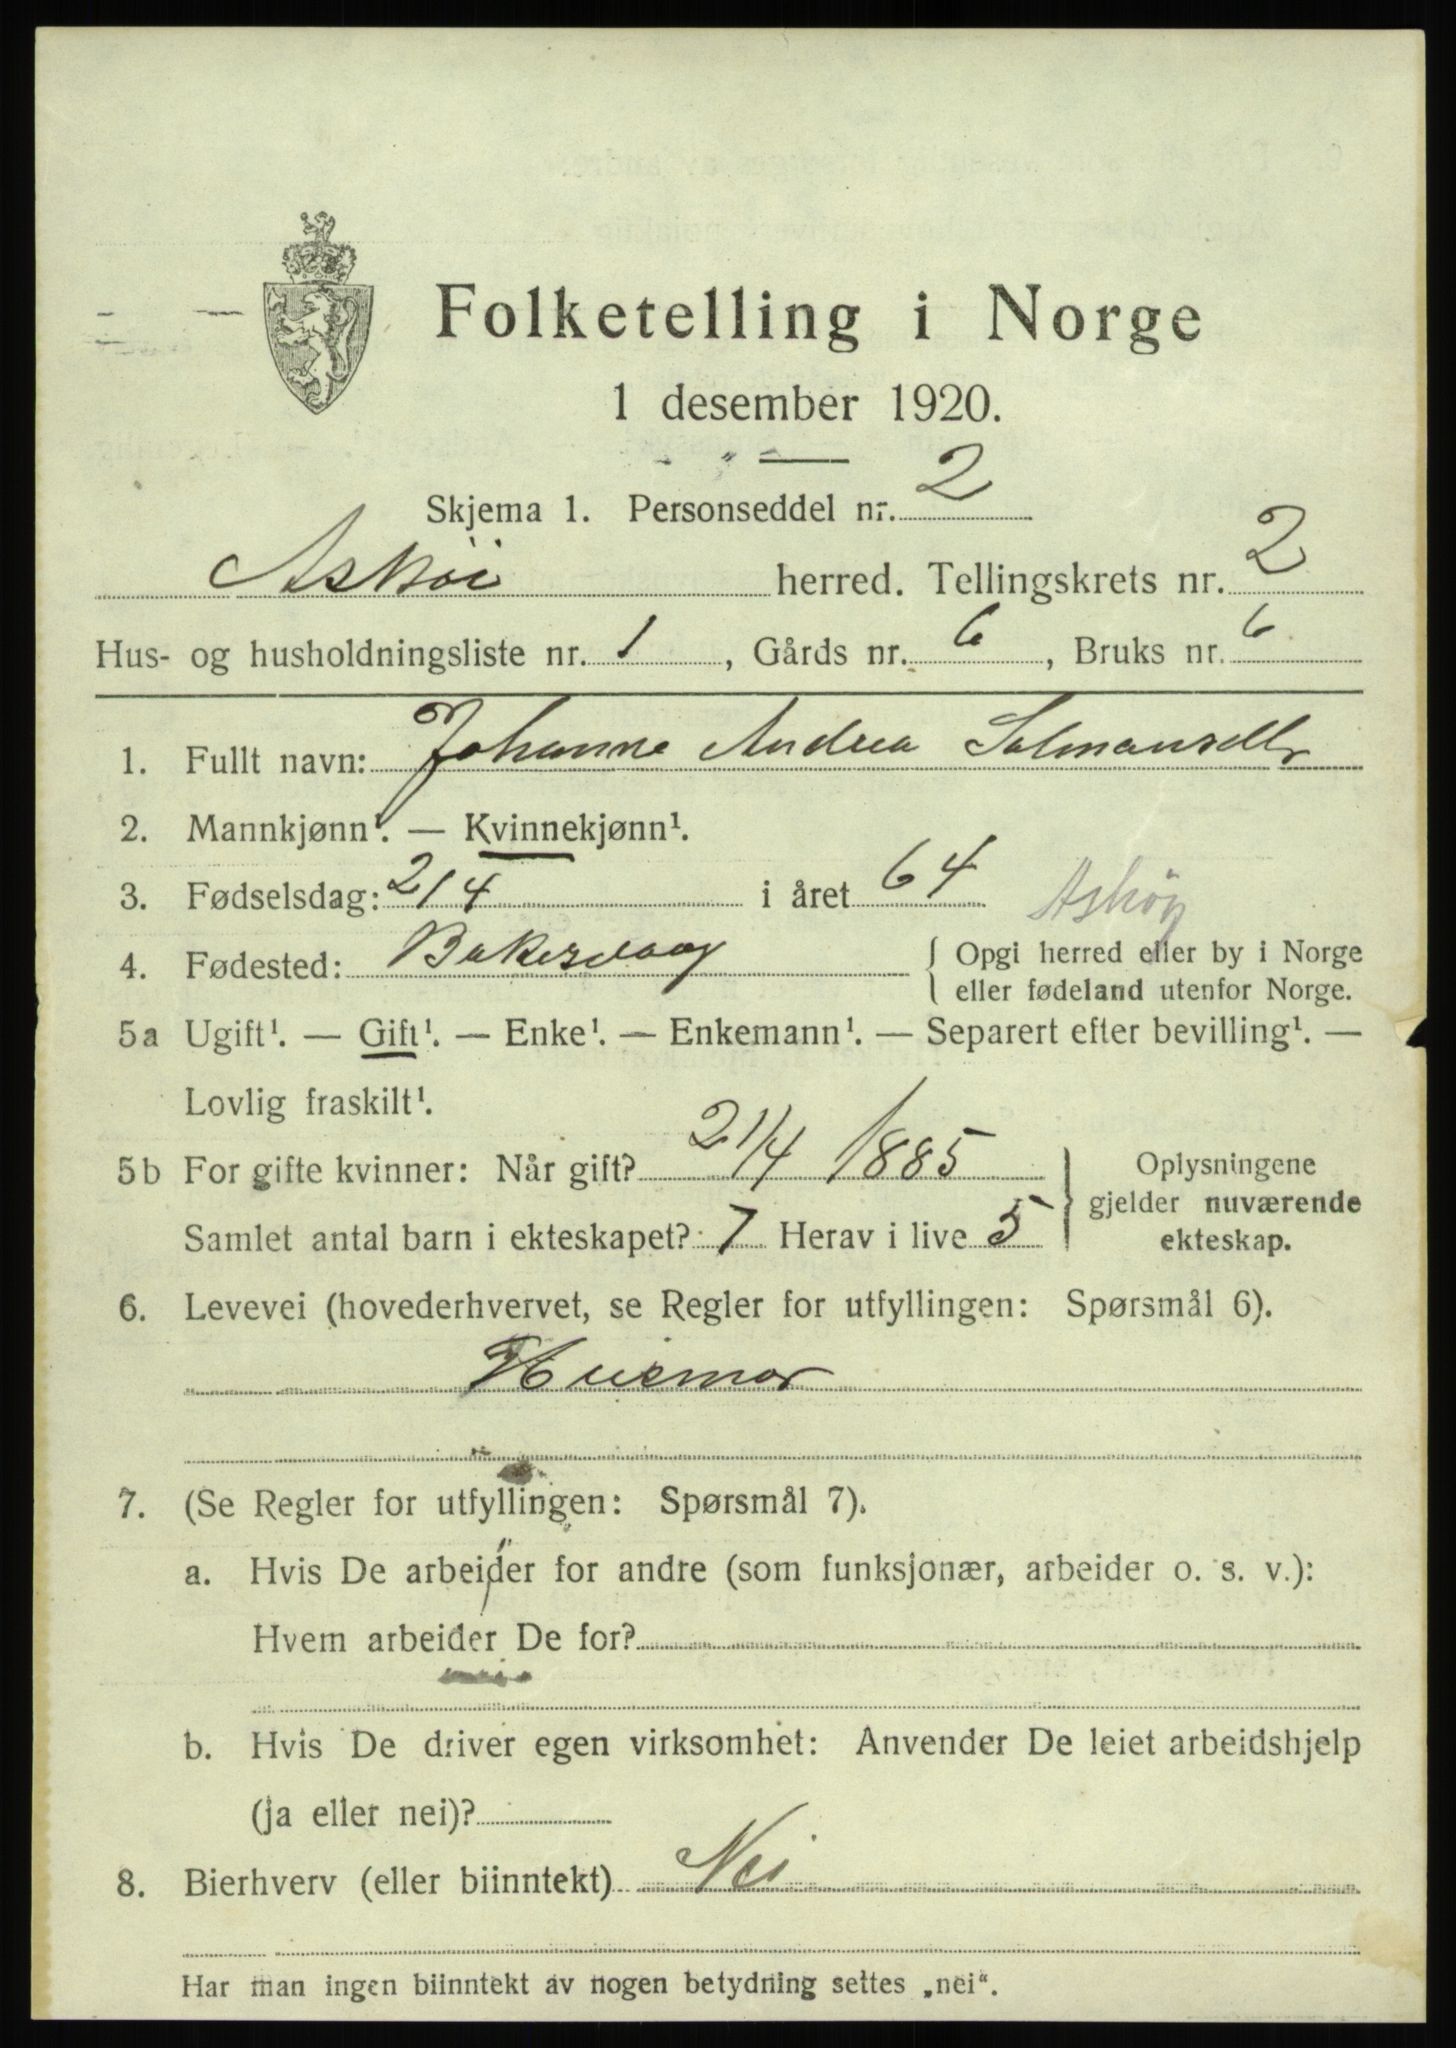 Folketelling i Norge
1 desember 1920.
Skjema 1. Personseddel nr. 2
Askøi herred. Tellingskrets nr. 2
Hus- og husholdningsliste nr. 1, Gårds nr. 6, Bruks nr. 6
1. Fullt navn: Johanne Andrea
2. Mannkjønn¹. — Kvinnekjønn¹.
3. Fødselsdag: 2/4 i året 64 Askøy
4. Fødested: { Opgi herred eller by i Norge
eller fødeland utenfor Norge.
5a Ugift¹. — Gift¹. — Enke¹. — Enkemann¹. — Separert efter bevilling¹. —
Lovlig fraskilt¹.
5b For gifte kvinner: Når gift? 21/4 1885 Oplysningene
gjelder nuværende
Samlet antal barn i ekteskapet? 7 Herav i live 5 ekteskap.
6. Levevei (hovederhvervet, se Regler for utfyllingen: Spørsmål 6).
Husmor
7. (Se Regler for utfyllingen: Spørsmål 7).
a. Hvis De arbeider for andre (som funksjonær, arbeider o. s. v.):
Hvem arbeider De for?
b. Hvis De driver egen virksomhet: Anvender De leiet arbeidshjelp
(ja eller nei)?
8. Bierhverv (eller biinntekt) Nei
Har man ingen biinntekt av nogen betydning settes „nei“.